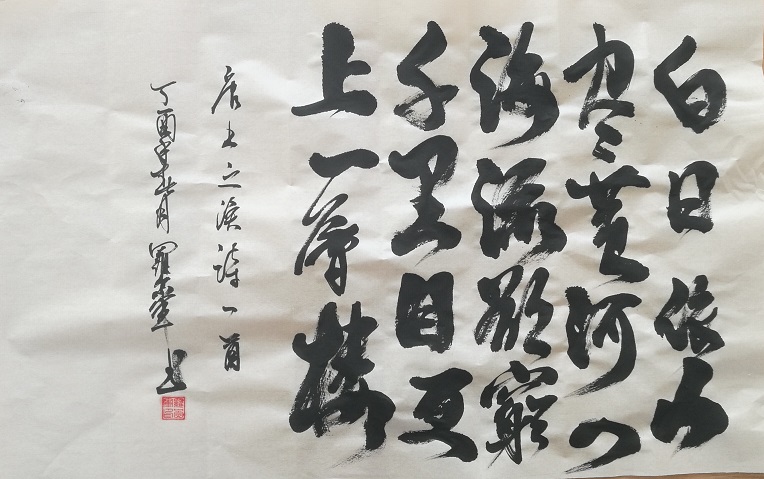 白日依山
尽黄河入
海流欲窮
千里目更
上一層楼
唐王之渙诗一首
丁酉年 月 羅 书